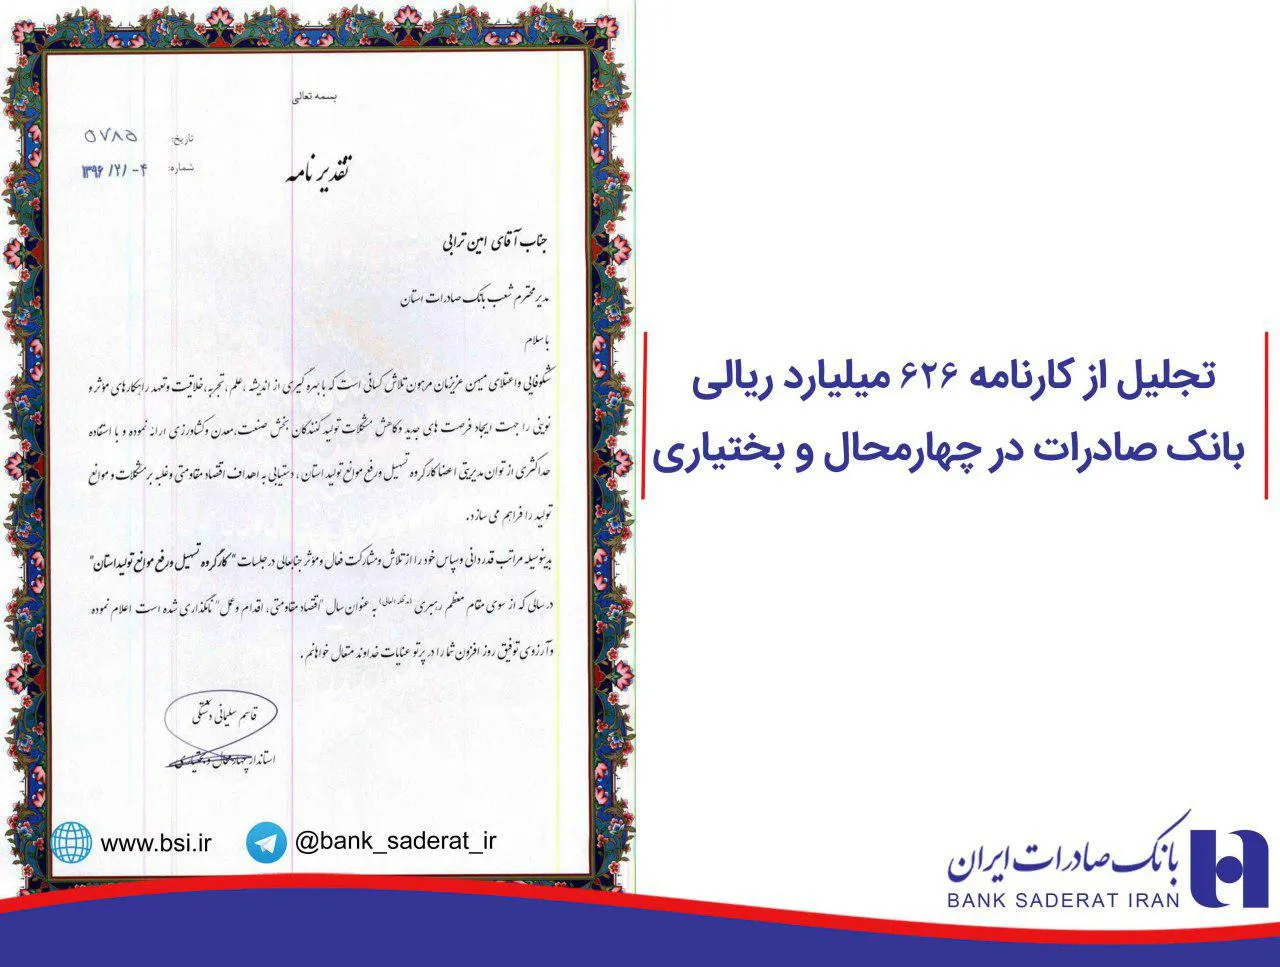 بسمه تعالی
تاریخ: ۵۷۸۵
شماره: ۱۳۹۶/۲/-۴
تقدیر نامه
جناب آقای امین ترابی
مدیر محترم شعب بانک صادرات استان
با سلام
شکوفایی و اعتلای میهن عزیزمان مرهون تلاش کسانی است که با بهره گیری از اندیشه ،علم ،تجربه،خلاقیت و تعهد راهکارهای مؤثر و
نوینی را جهت ایجاد فرصت های جدید و کاهش مشکلات تولید کنندگان بخش صنعت،معدن و کشاورزی ارائه نموده و با استفاده
حداکثری از توان مدیریتی اعضا کارگروه تسهیل و رفع موانع تولید استان ، دستیابی به اهداف اقتصاد مقاومتی و غلبه بر مشکلات و موانع
تولید را فراهم می سازد.
بدینوسیله مراتب قدردانی و سپاس خود را از تلاش و مشارکت فعال و مؤثر جنابعالی در جلسات "کارگروه تسهیل و رفع موانع تولید استان"
در سالی که از سوی مقام معظم رهبری (مد ظله العالی) به عنوان سال "اقتصاد مقاومتی، اقدام و عمل" نامگذاری شده است اعلام نموده
و آرزوی توفیق روز افزون شما را در پرتو عنایات خداوند متعال خواهانم .
قاسم سلیمانی دشتکی
استاندار چهارمحال و بختیاری
www.bsi.ir
@bank_saderat_ir
تجلیل از کارنامه ۶۲۶ میلیارد ریالی
بانک صادرات در چهارمحال و بختیاری
بانک صادرات ایران
BANK SADERAT IRAN